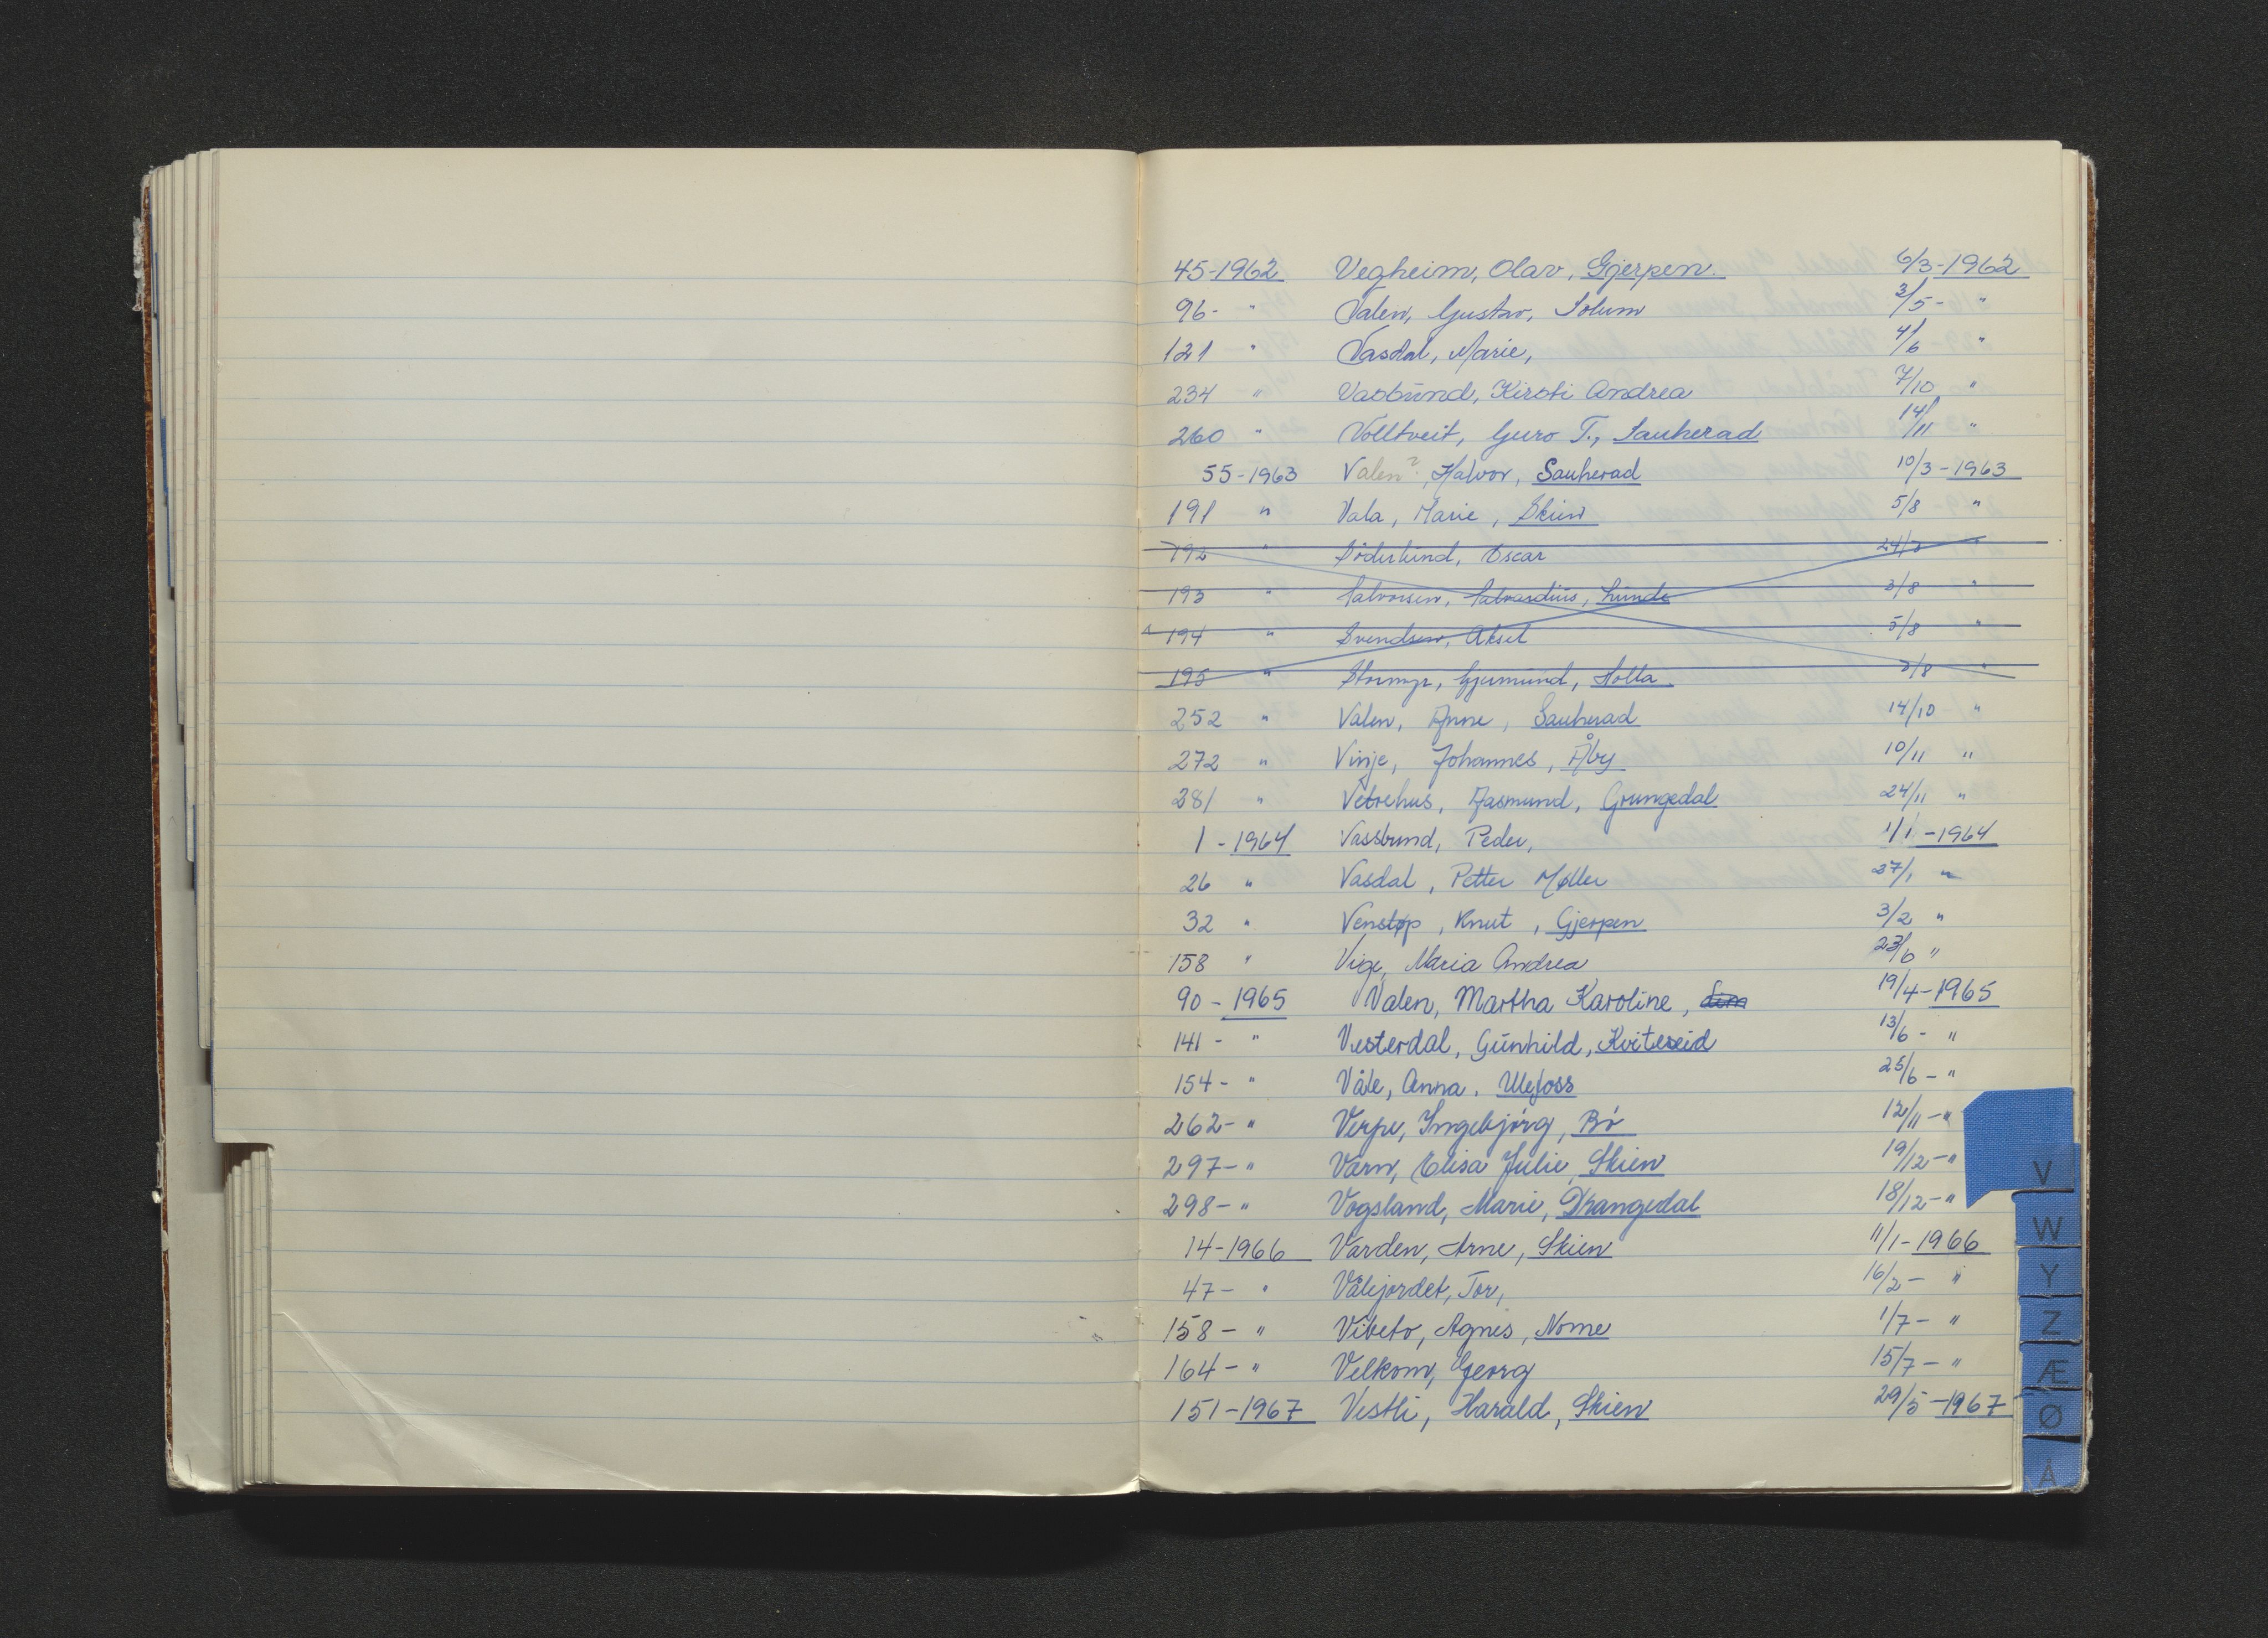 45-1962 Vegheim, Olav, Gjerpen. 6/3-1962
96- " Valen, Gustav, Solum 3/5- "
121 " Vasdal, Marie, 4/6 "
234 " Vasbund, Kirsti Andrea 7/10 "
260 " Volltveit, Guro T., Sauherad 14/11 "
55-1963 Valen?, Halvor, Sauherad 10/3-1963
191 " Vala, Marie, Skien 5/8 "
192 " Söderlund, Oscar "
193 " Salvorsen, Lunde 3/8 "
194 " Svendsen, Aksel 5/8 "
195 " Stormyr, Gjermund, Holla "
252 " Valen, Anne, Sauherad 14/10 "
272 " Vinje, Johannes, Åby 10/11 "
281 " Vetrehus, Aasmund, Grungedal 24/11 "
1-1964 Vassbund, Peder, 1/1-1964
26 " Vasdal, Petter Møller 27/1 "
32 " Venstøp, Knut, Gjerpen 3/2 "
158 " Vige, Maria Andrea 23/6 "
90-1965 Valen, Martha Karoline, 19/4-1965
141- " Vesterdal, Gunhild, Kviteseid 13/6- "
154- " Våle, Anna. Ulefoss 25/6- "
262- " Verpe, Ingebjörg, Bö 12/11- "
297- " Værn, Elisa Julie, Skien 19/12- "
298- " Vogsland, Marie, Drangedal 18/12- "
14-1966 Varden, Arne, Skien 11/1-1966
47- " Vålejordet, Tor, 16/2- "
158- " Vibeto, Agnes, Nome 1/7- "
164- " Velkom, Georg 15/7- "
151-1967 Vestli, Harald, Skien 29/5-1967
V
W
Y
Z
Æ
Ø
Å